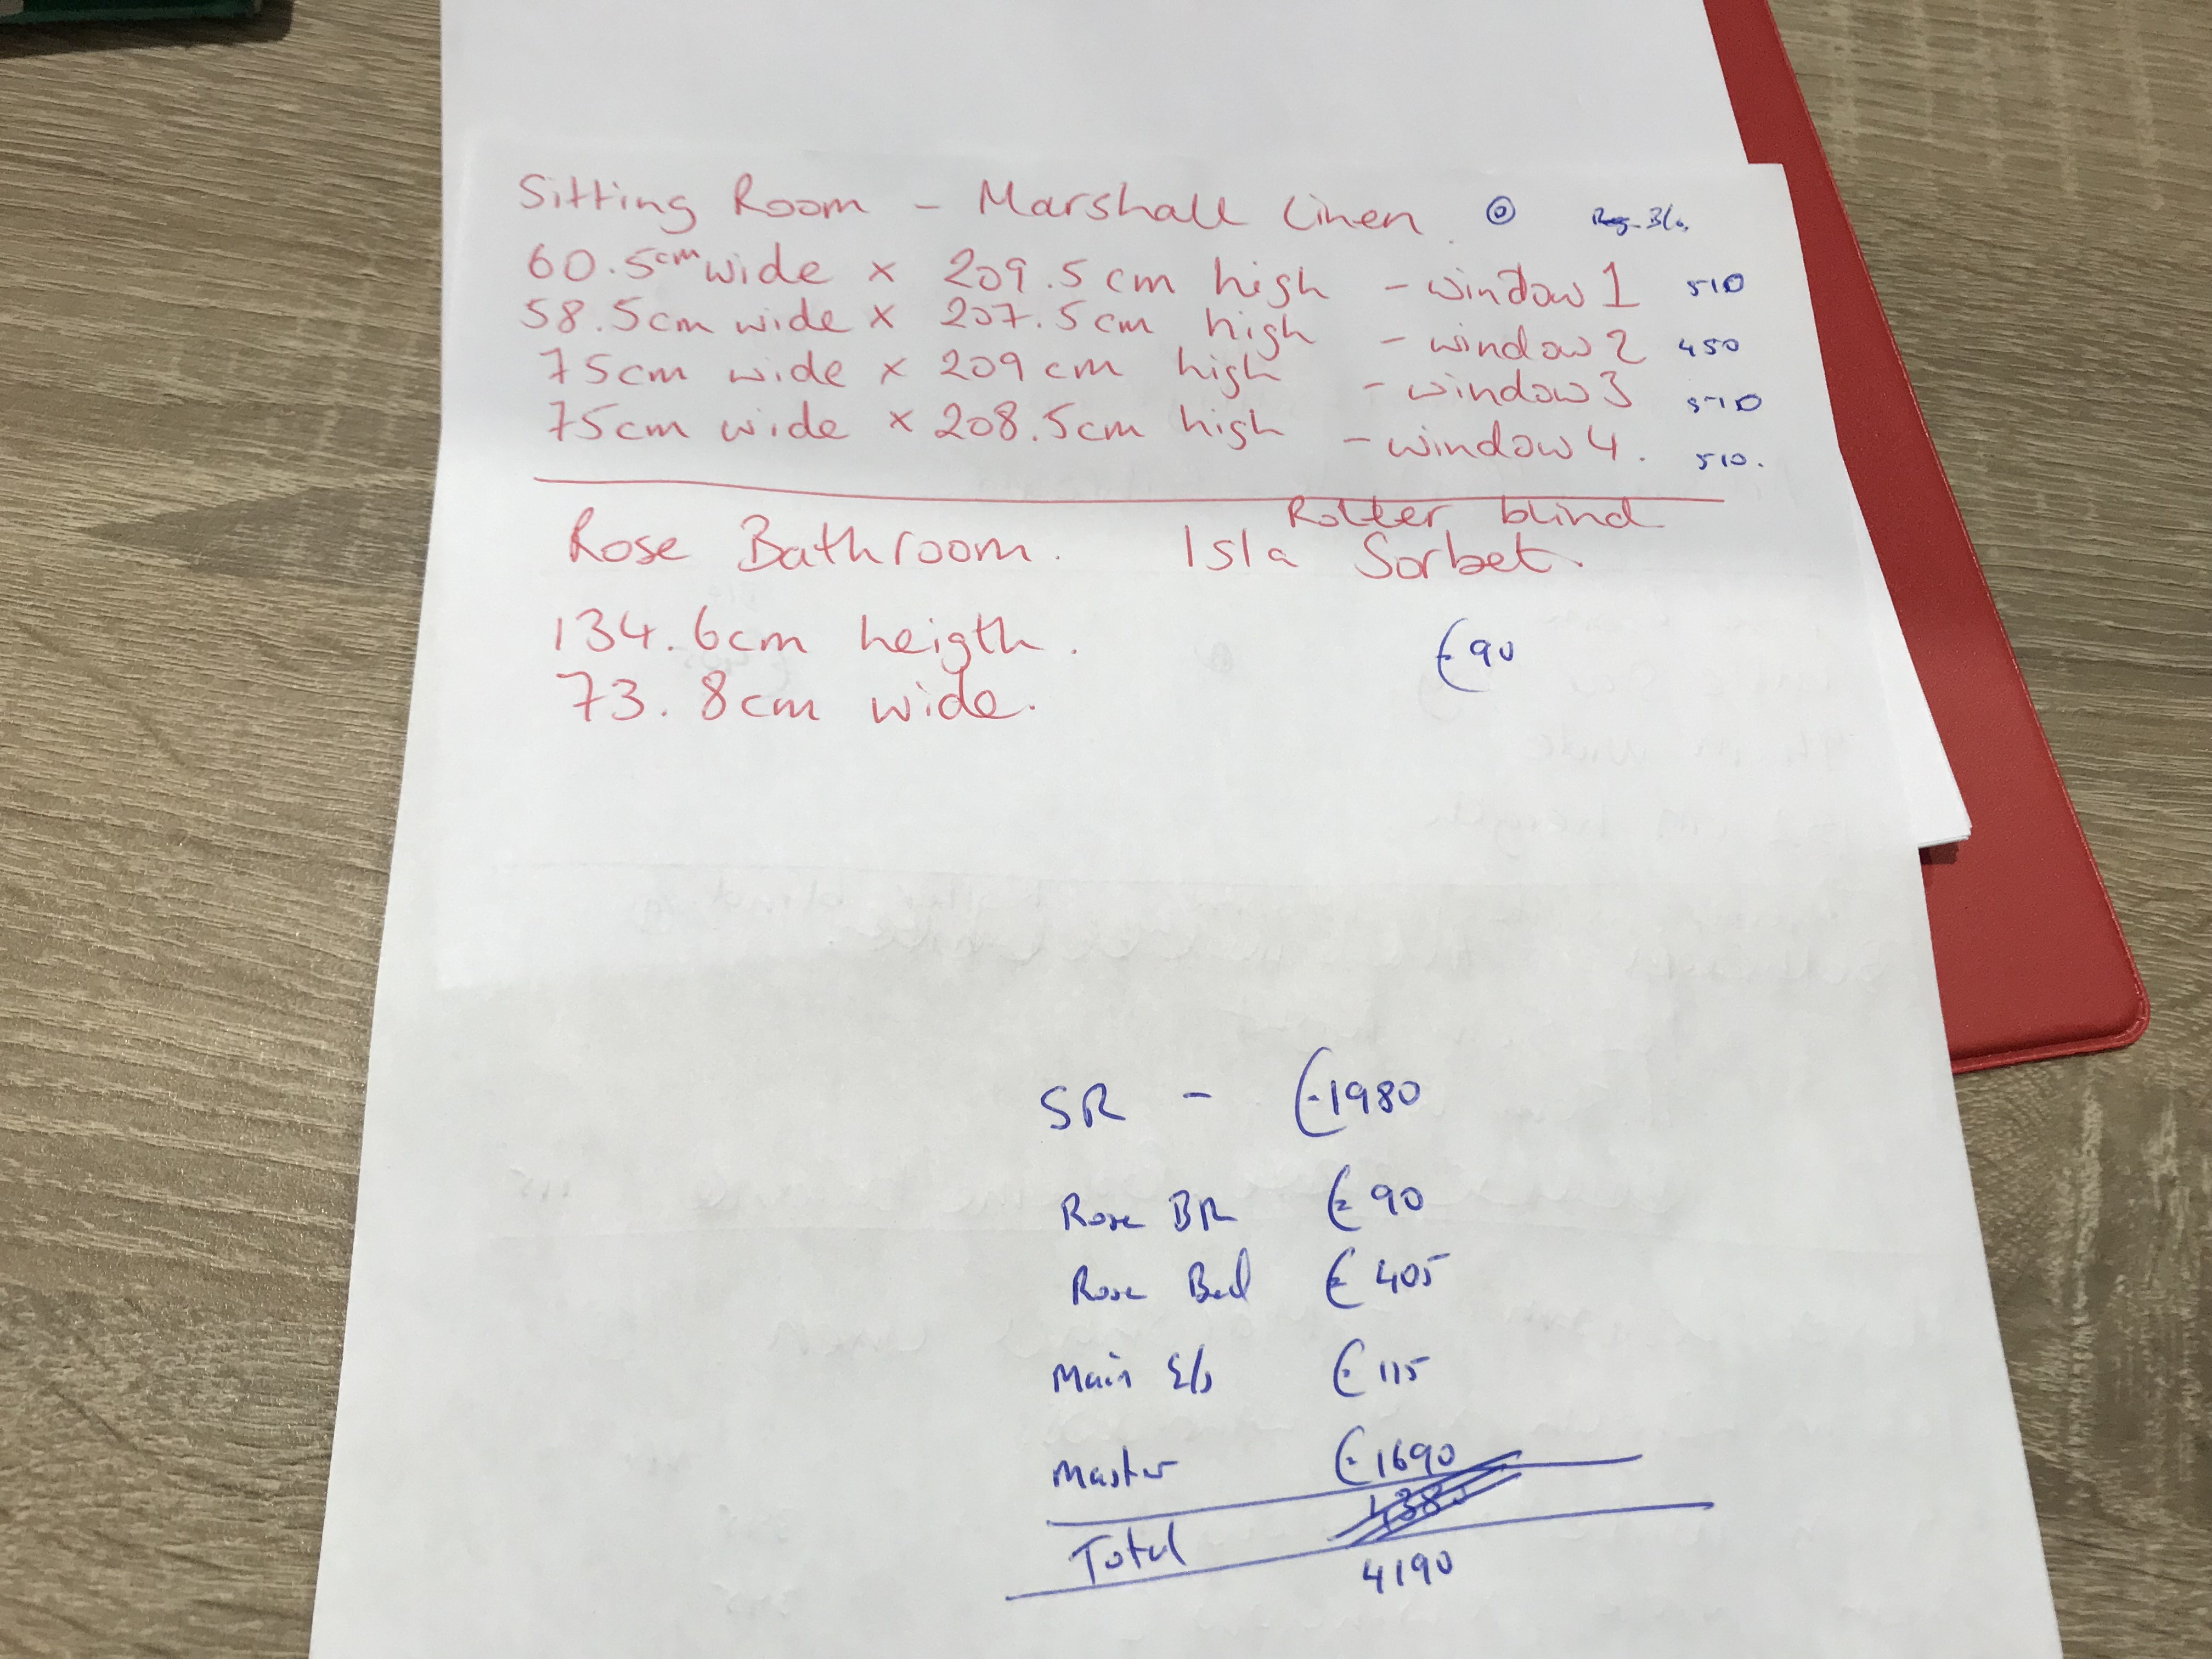 Sitting Room - Marshall Linen
60.5cm wide x 209.5 cm high - window 1 510
58.5cm wide x 207.5cm high - window 2 450
75cm wide x 209 cm high - window 3 510
75cm wide x 208.5cm high - window 4. 510.
Roller blind
Rose Bathroom. Isla Sorbet.
134.6cm heigth.
73.8cm wide.
€90
SR - €1980
Rose BR €90
Rose Bed €405
Main E/s €115
Master €1690
Total 4190